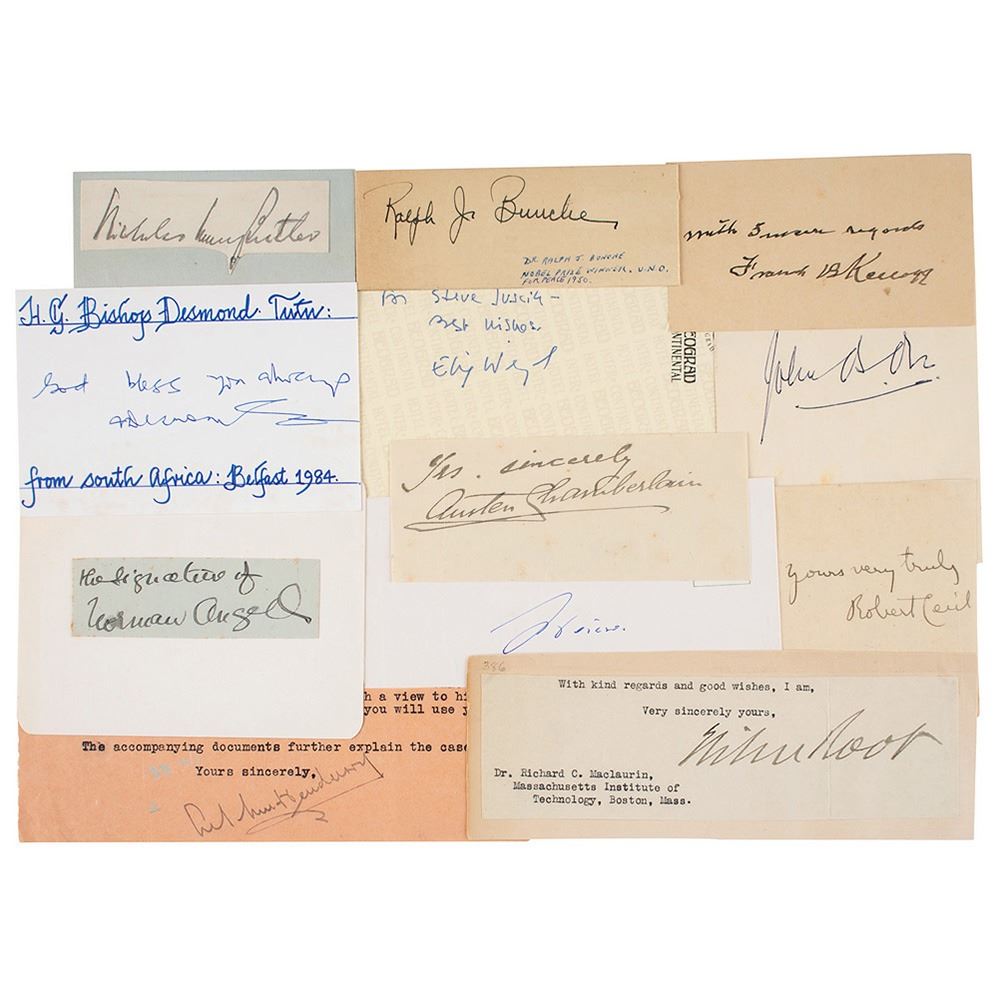 Nicholas Murray Butler
Ralph J. Bunche
DR RALPH J. BUNCHE
NOBEL PRIZE WINNER, U.N.O.
FOR PEACE 1950.
with sincere regards
Frank B Kellogg
H. G. Bishop Desmond. Tutu:
God bless you always
from south Africa: Belfast 1984.
Steve
Best wishes
OGRAD
NTINENTAL
John B. Orr.
Yrs. sincerely
Austen Chamberlain
the signature of
Norman Angell
yours very truly
Robert Cecil
386
With kind regards and good wishes, I am,
Very sincerely yours,
Elihu Root
Dr. Richard C. Maclaurin,
Massachusetts Institute of
Technology, Boston, Mass.
h a view to hi
you will use y
The accompanying documents further explain the case
Yours sincerely,
Arthur Henderson